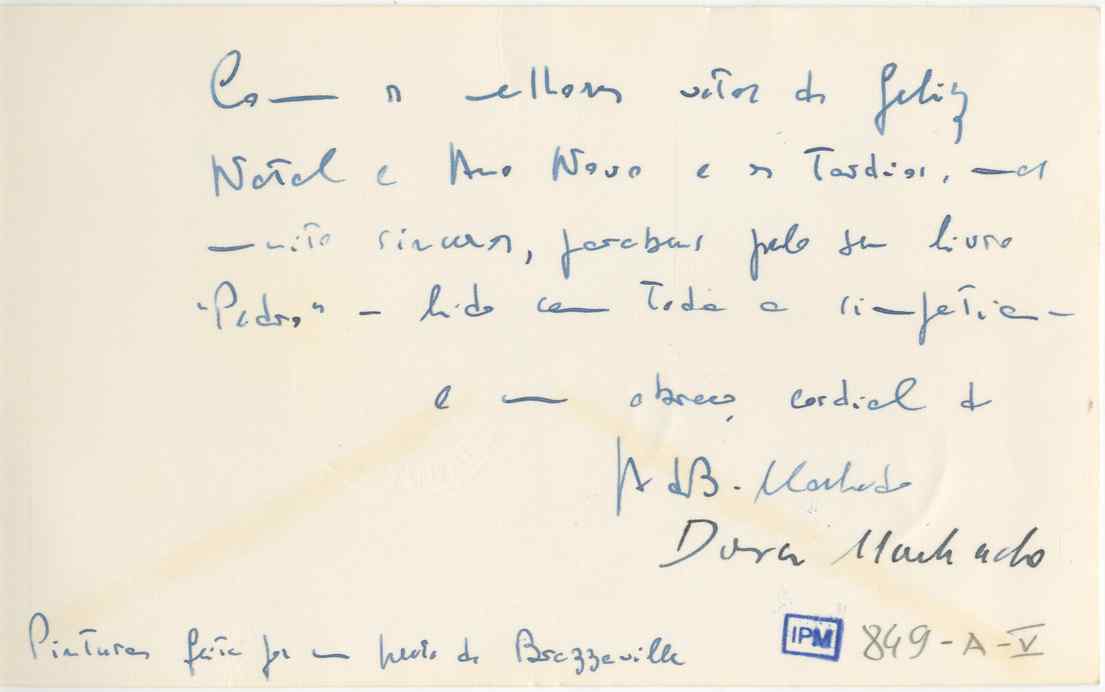 Com os melhores votos de Feliz
Natal e Ano Novo e os tardios, mas
muito sinceros, parabens pelo seu livro
"Pedras" – lido com toda a simpatia –
e um abraço cordial do
A de B. Machado
Dora Machado
Pinturas feita por um preto de Brazzaville
IPM 849-A-V